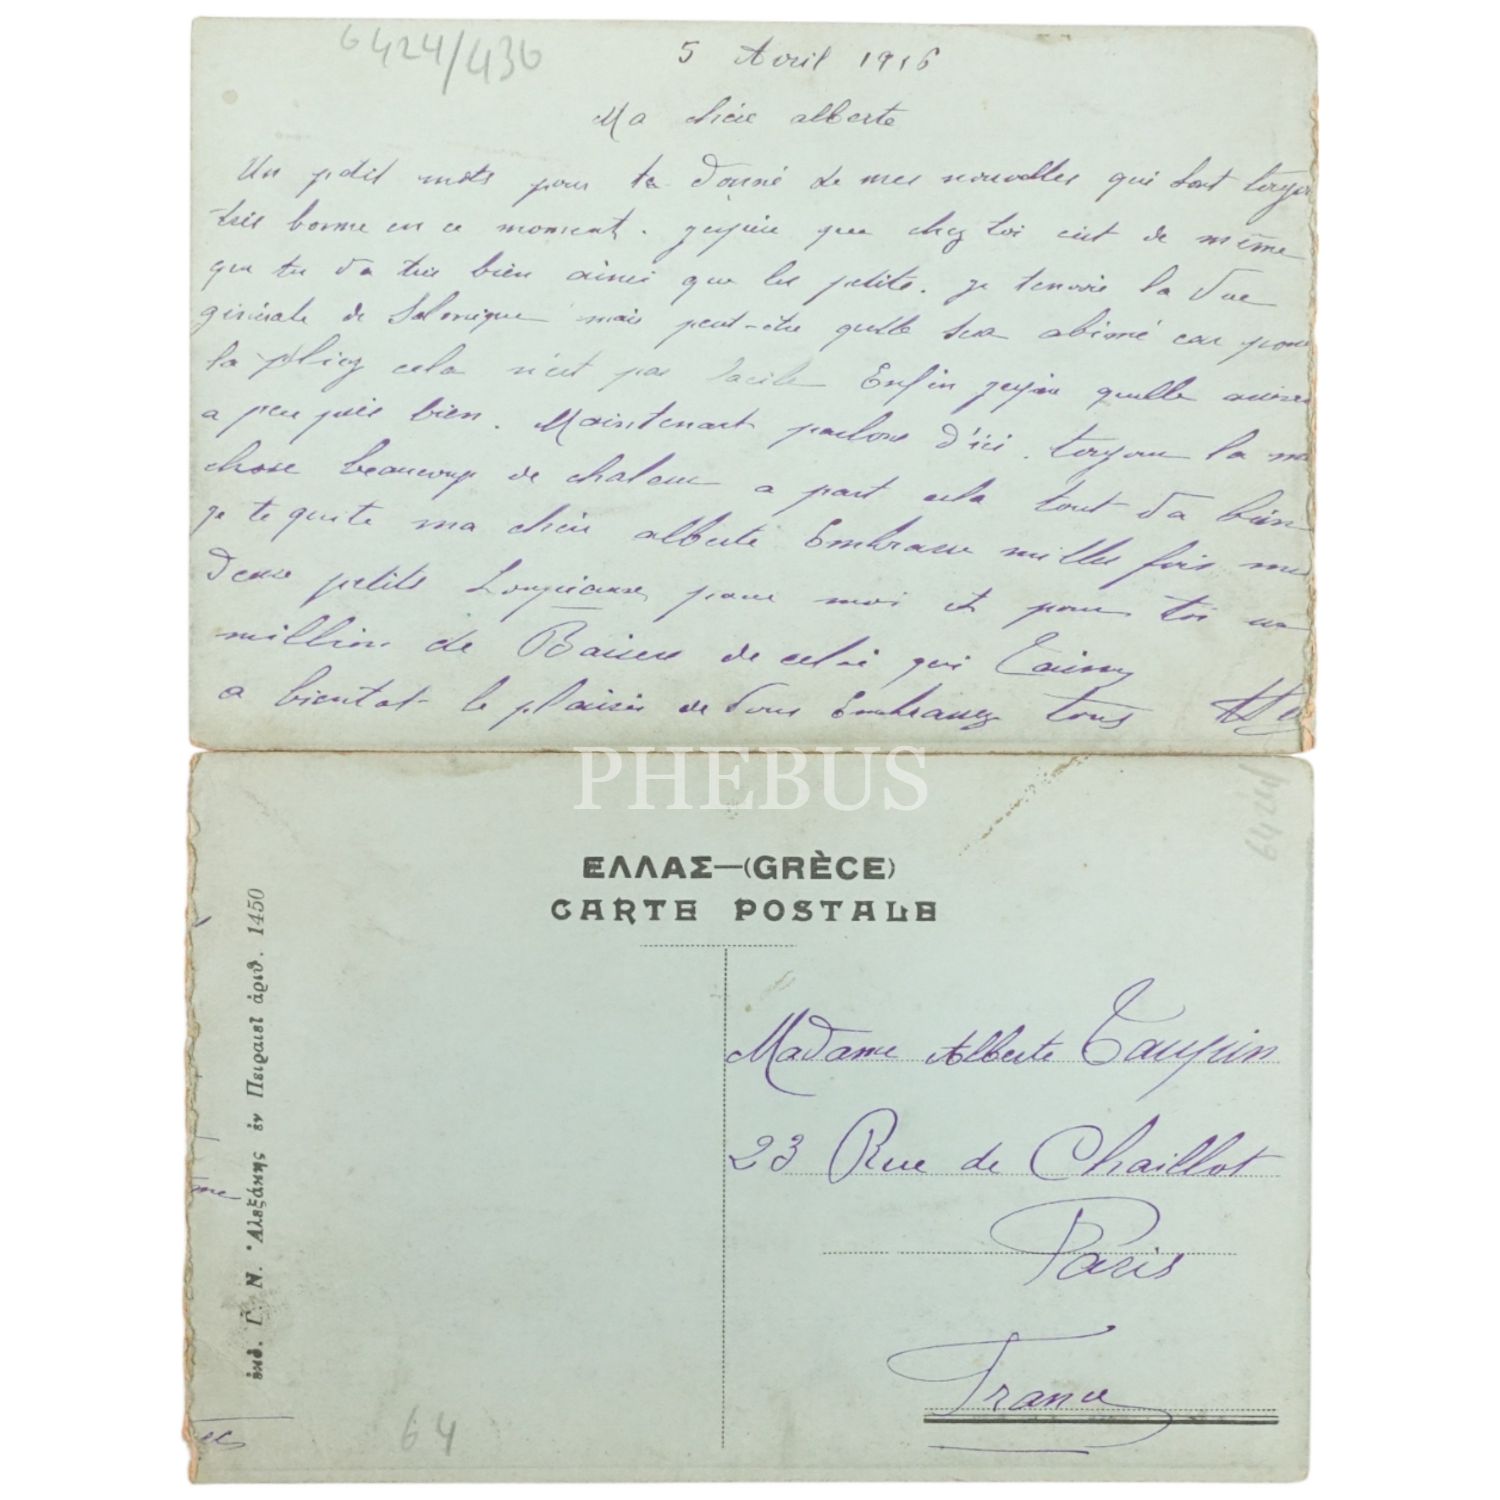 6424/430
5 Avril 1916
Ma chère alberte
Un petit mots pour te donné de mes nouvelles qui sont toujou
très bonne en ce moment. j'espère que chez toi c'est de même
que tu va très bien ainsi que les petite. je t'envoie la vue
générale de Salonique mais peut-etre quelle sera abimé car pour
la pliez cela n'est pas facile Enfin jespère quelle arrive
a peu près bien. Maintenant parlons d'ici. toujour la me
chose beaucoup de chaleur a part cela tout va bien
je te quitte ma chère alberte Embrasse milles fois mes
deux petits Loupieaux pour moi et pour toi un
million de Baisers de celui qui t'aime
a bientot le plaisir de vous Embrassez tous
PHEBUS
6424
ΕΛΛΑΣ—(GRÈCE)
CARTE POSTALE
ἐκδ. Γ. Ν. Ἀλεξάκης ἐν Πειραιεῖ ἀριθ. 1450
Madame Alberte Taupin
23 Rue de Chaillot
Paris
France
me
64